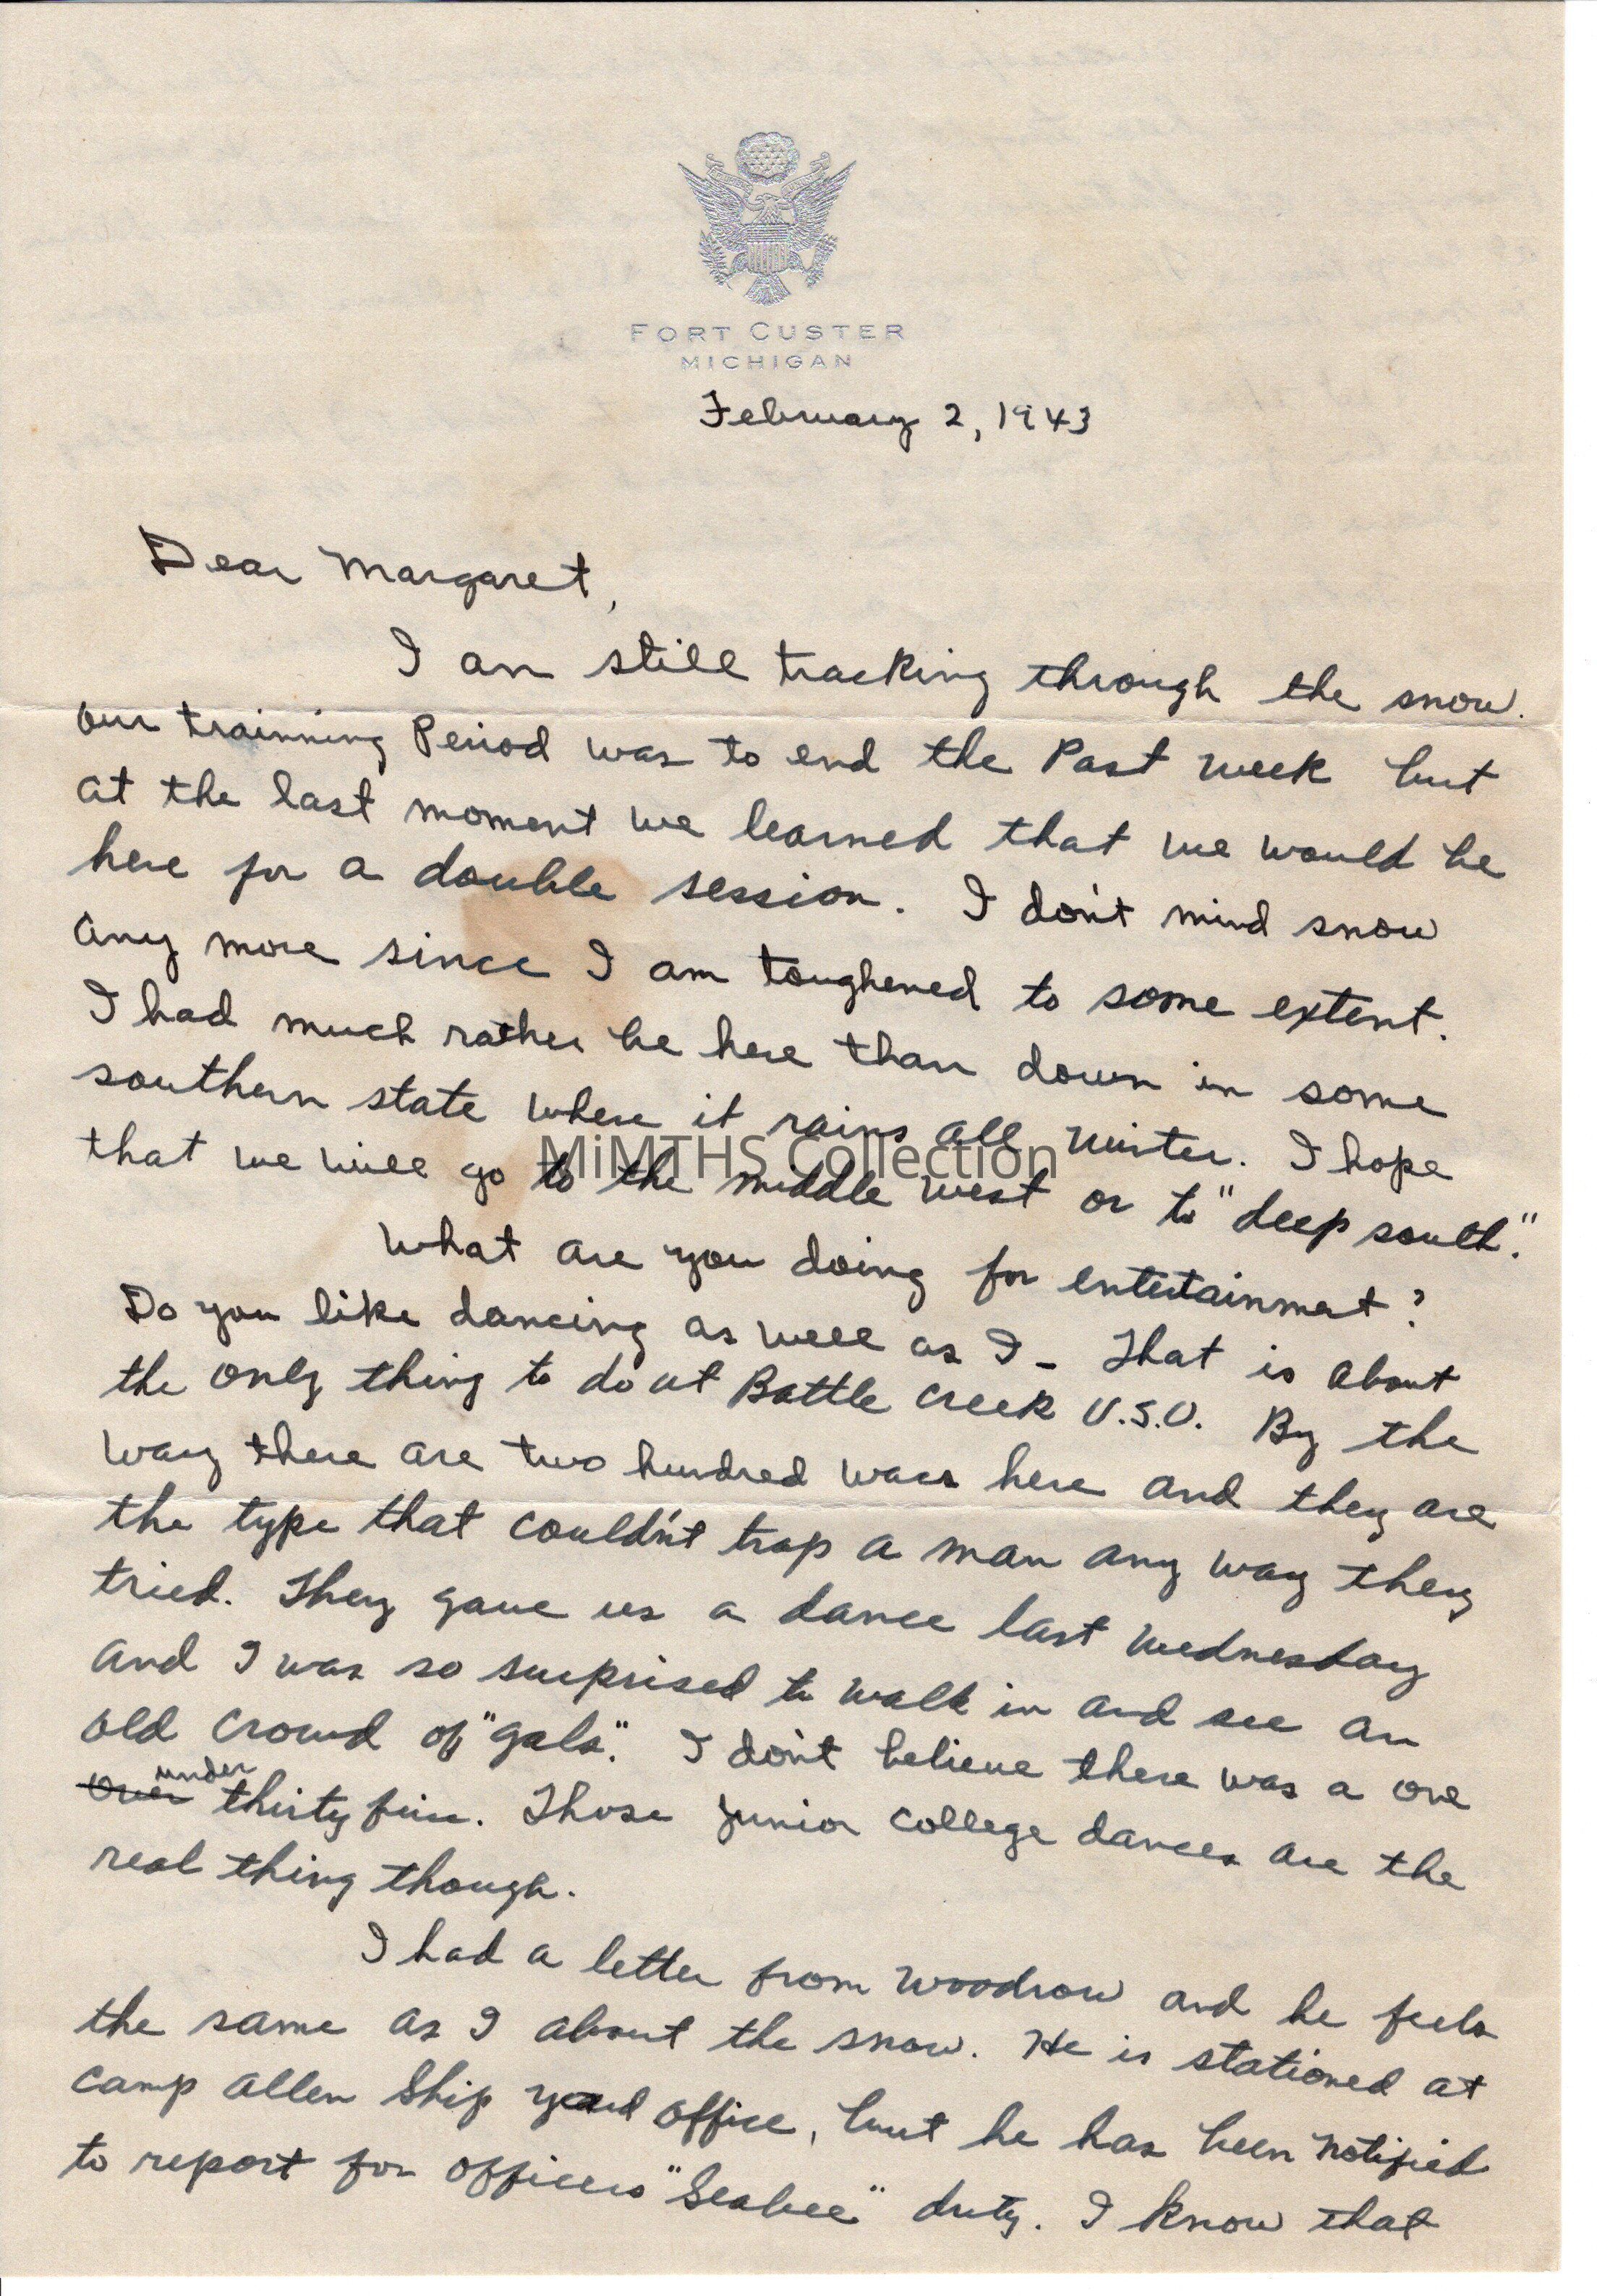 FORT CUSTER
MICHIGAN
February 2, 1943
Dear Margaret,
I am still tracking through the snow.
our trainning Period was to end the Past week but
at the last moment we learned that we would be
here for a double session. I don't mind snow
any more since I am toughened to some extent.
I had much rather be here than down in some
southern state where it rains all winter. I hope
that we will go to the middle west or to "deep south".
MiMTHS Collection
What are you doing for entertainment?
Do you like dancing as well as I - That is about
the only thing to do at Battle Creek U.S.O. By the
way there are two hundred waacs here and they are
the type that couldn't trap a man any way they
tried. They gave us a dance last Wednesday
and I was so surprised to walk in and see an
old crowd of "gals". I don't believe there was a one
over under thirty five. Those Junior College dances are the
real thing though.
I had a letter from Woodrow and he feels
the same as I about the snow. He is stationed at
Camp Allen Ship yard office, but he has been notified
to report for officers "Seabee" duty. I know that